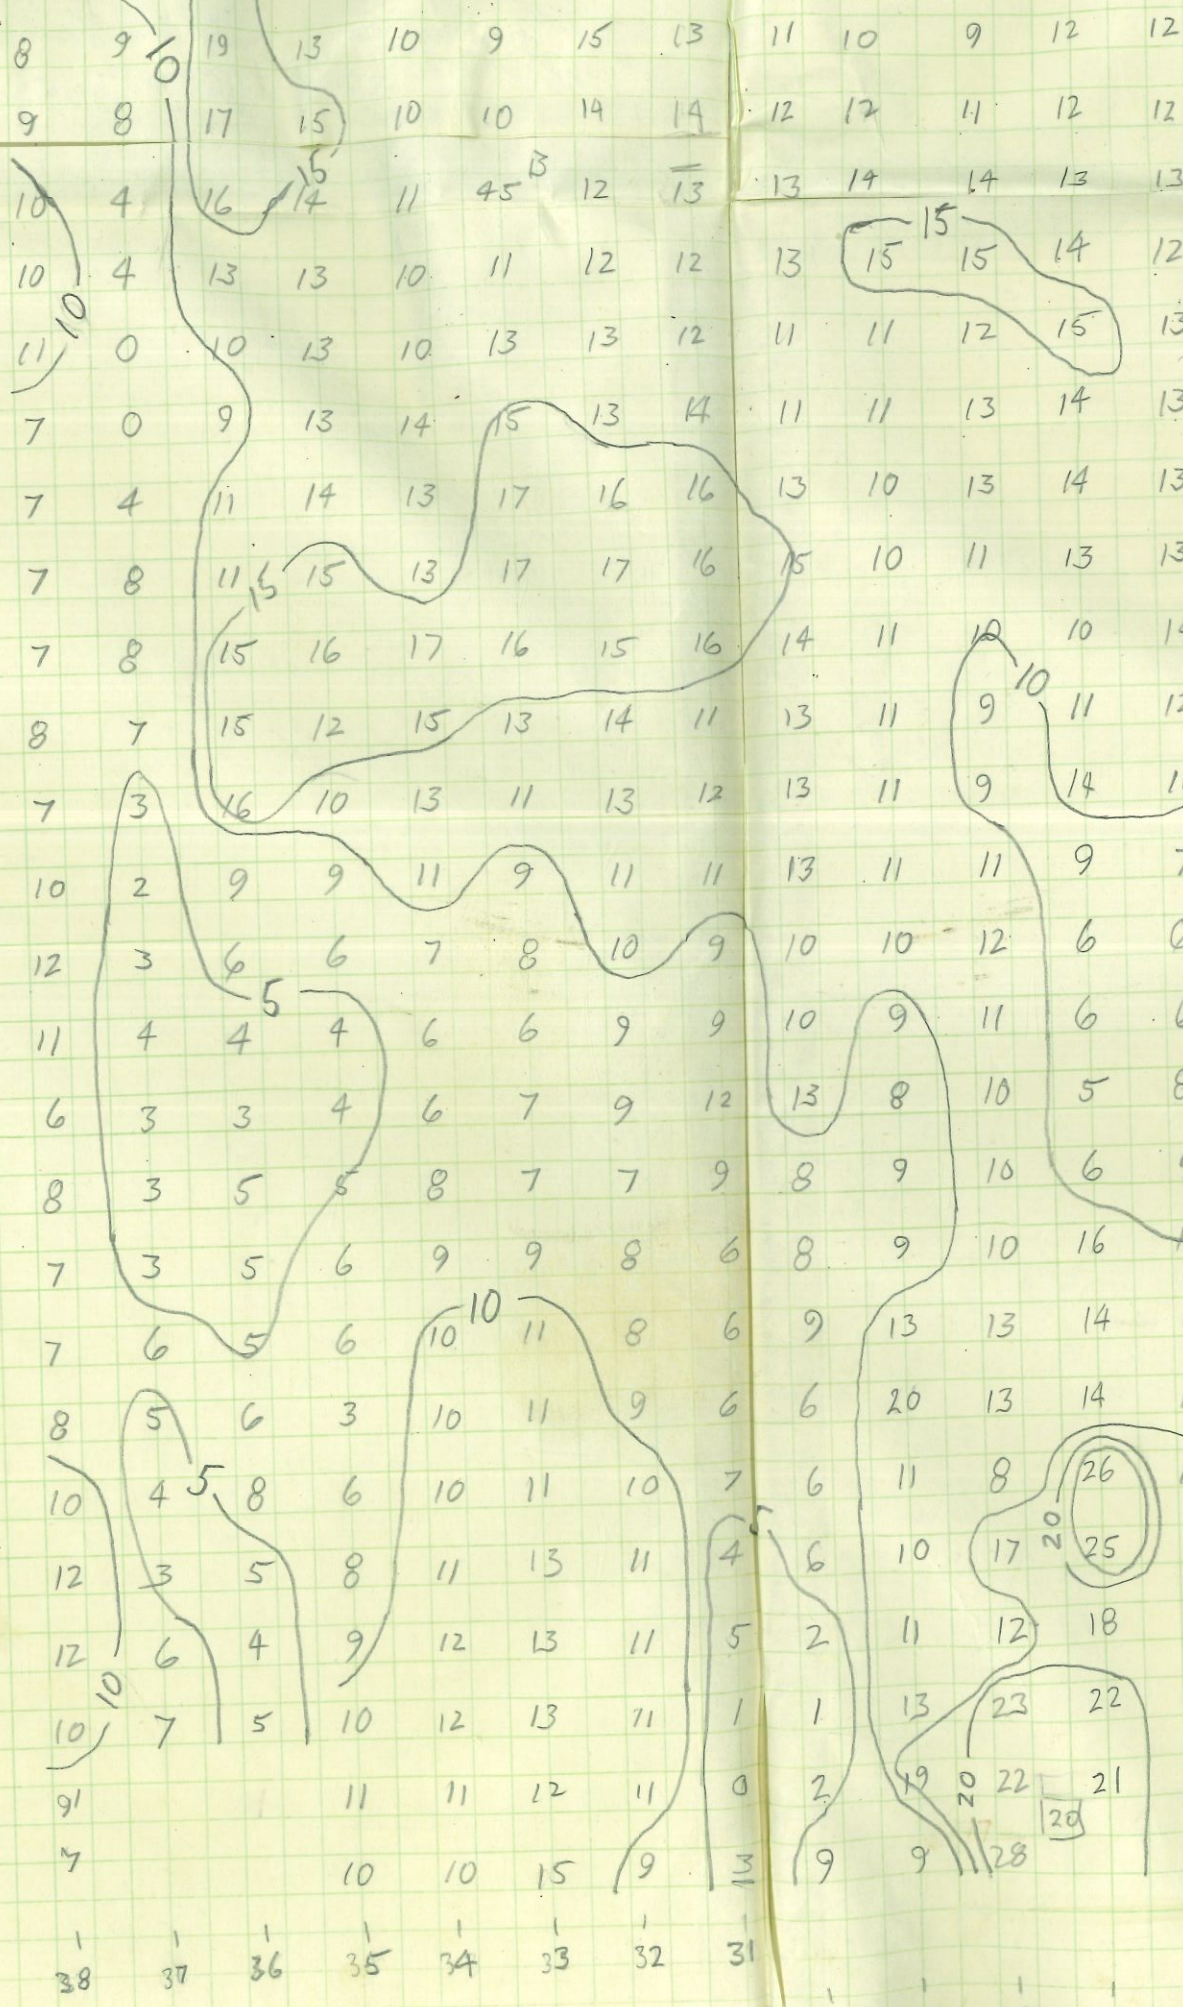 8 9 19 13 10 9 15 13 11 10 9 12 12
10
9 8 17 15 10 10 14 14 12 12 11 12 12
15 13
10 4 16 14 11 45 12 13 13 14 14 13 13
15
10 4 13 13 10 11 12 12 13 15 15 14 12
10
11 0 10 13 10 13 13 12 11 11 12 15 13
7 0 9 13 14 15 13 14 11 11 13 14 13
7 4 11 14 13 17 16 16 13 10 13 14 13
7 8 11 15 13 17 17 16 15 10 11 13 13
15
7 8 15 16 17 16 15 16 14 11 10 10
10
8 7 15 12 15 13 14 11 13 11 9 11
7 3 16 10 13 11 13 12 13 11 9 14
10 2 9 9 11 9 11 11 13 11 11 9
12 3 6 6 7 8 10 9 10 10 12 6
5
11 4 4 4 6 6 9 9 10 9 11 6
6 3 3 4 6 7 9 12 13 8 10 5 8
8 3 5 5 8 7 7 9 8 9 10 6
7 3 5 6 9 9 8 6 8 9 10 16
10
7 6 5 6 10 11 8 6 9 13 13 14
8 5 6 3 10 11 9 6 6 20 13 14
5
10 4 8 6 10 11 10 7 6 11 8 26
5 20
12 3 5 8 11 13 11 4 6 10 17 25
12 6 4 9 12 13 11 5 2 11 12 18
10
10 7 5 10 12 13 11 1 1 13 23 22
20
9 11 11 12 11 0 2 19 22 21
20
7 10 10 15 9 13 9 9 28
38 37 36 35 34 33 32 31